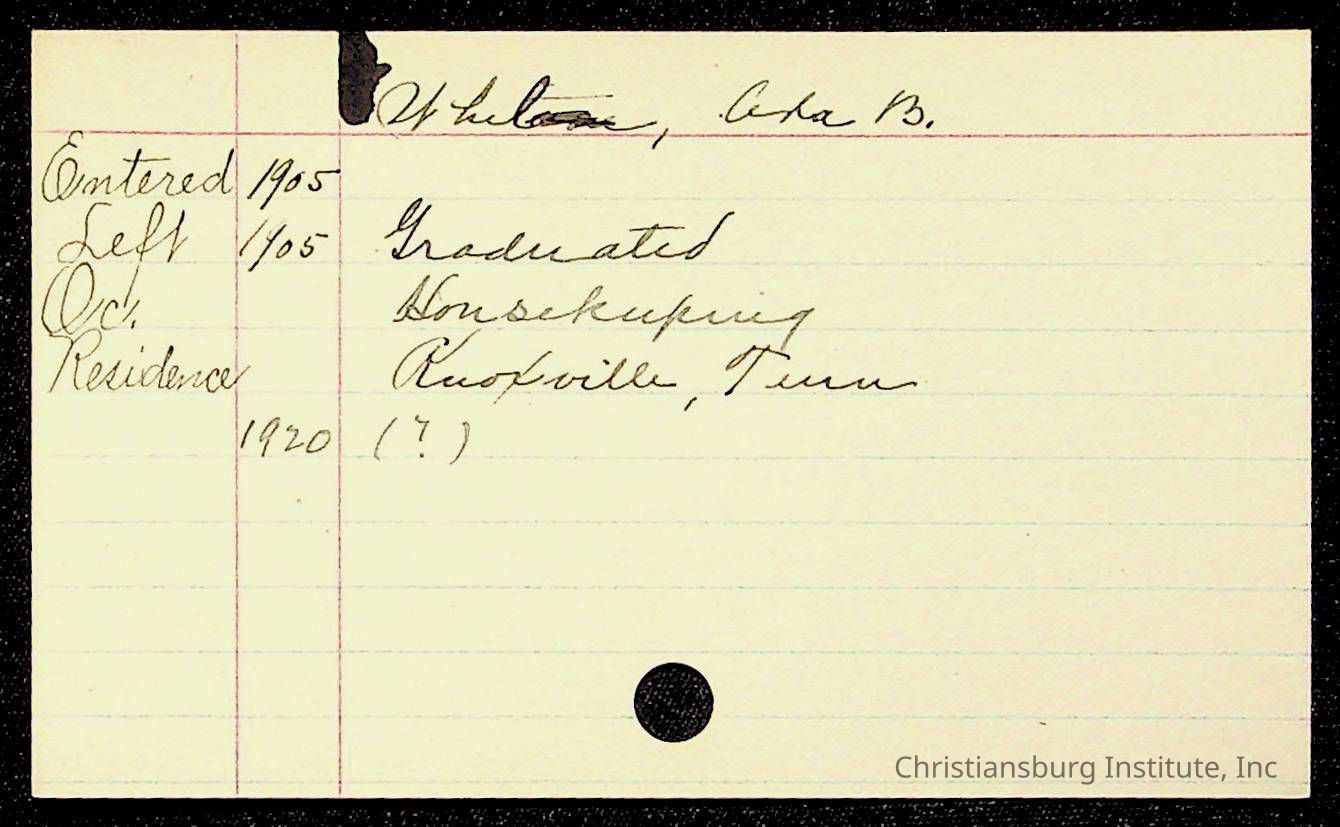 Ada B.
Entered 1905
Left 1905 Graduated
Oc. Housekeeping
Residence Knoxville, Tenn
1920 (?)
Christiansburg Institute, Inc